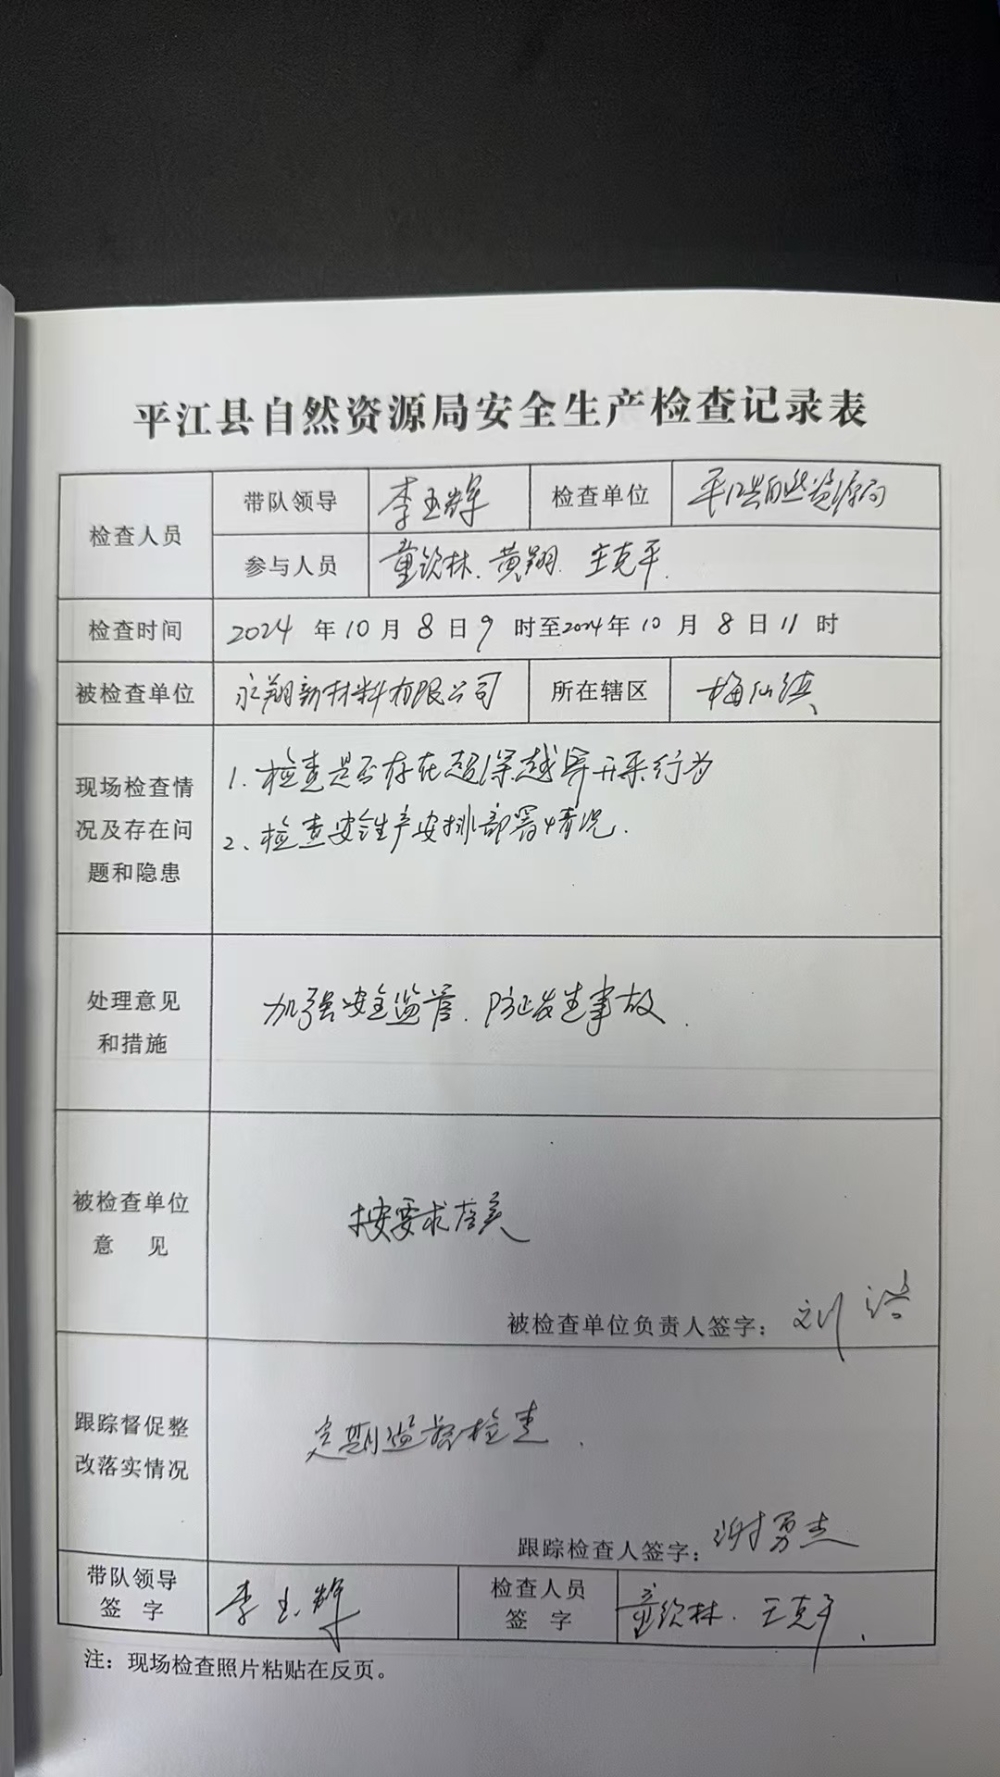 平江县自然资源局安全生产检查记录表
检查人员 带队领导 李玉辉 检查单位 平江县自然资源局
参与人员 童钦林、黄翔、王克平
检查时间 2024年10月8日9时至2024年10月8日11时
被检查单位 永翔新材料有限公司 所在辖区 梅仙镇
现场检查情况及存在问题和隐患
1、检查是否存在超深越界开采行为
2、检查安全生产安排部署情况.
处理意见和措施
加强安全监管、防止发生事故.
被检查单位意见
按要求落实
被检查单位负责人签字：刘浩
跟踪督促整改落实情况
定期监督检查.
跟踪检查人签字：谢勇杰
带队领导签字 李玉辉 检查人员签字 童钦林、王克平
注：现场检查照片粘贴在反页。